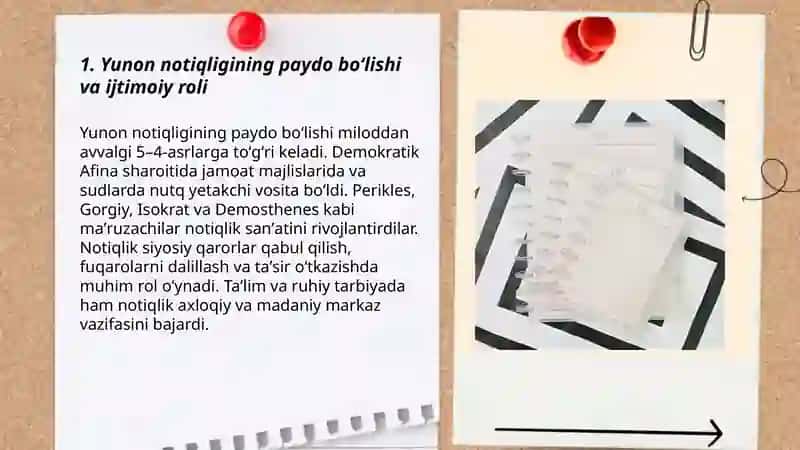 1. Yunon notiqligining paydo bo‘lishi
va ijtimoiy roli
Yunon notiqligining paydo bo‘lishi miloddan
avvalgi 5–4-asrlarga to‘g‘ri keladi. Demokratik
Afina sharoitida jamoat majlislarida va
sudlarda nutq yetakchi vosita bo‘ldi. Perikles,
Gorgiy, Isokrat va Demosthenes kabi
ma’ruzachilar notiqlik san’atini rivojlantirdilar.
Notiqlik siyosiy qarorlar qabul qilish,
fuqarolarni dalillash va ta’sir o‘tkazishda
muhim rol o‘ynadi. Ta’lim va ruhiy tarbiyada
ham notiqlik axloqiy va madaniy markaz
vazifasini bajardi.